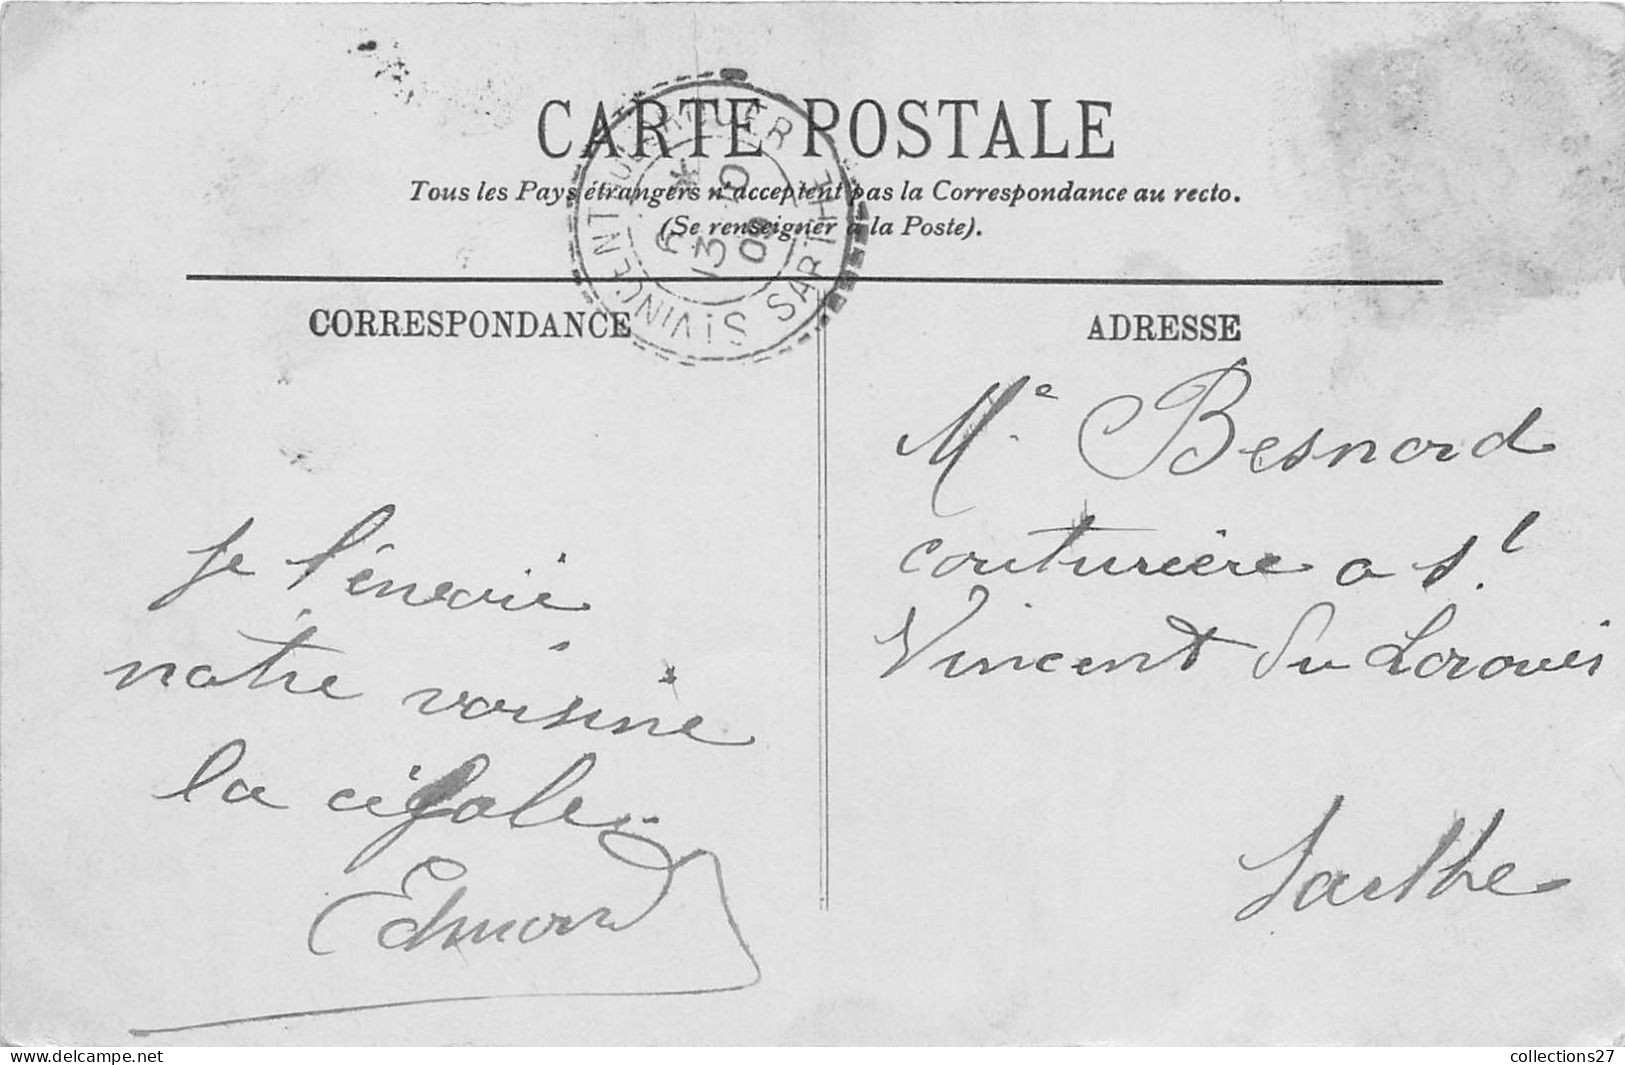 CARTE POSTALE
Tous les Pays étrangers n'acceptent pas la Correspondance au recto.
(Se renseigner à la Poste).
ST VINCENT DU LOROUER
SARTHE
13
09
CORRESPONDANCE
ADRESSE
Je t'envoie
notre voisine
la cigale
Edmond
Me Besnard
couturière a St
Vincent du Lorouër
Sarthe
www.delcampe.net
collections27